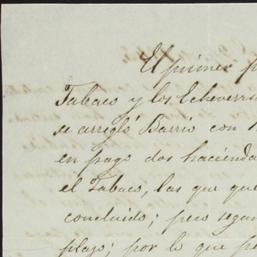 El primer p
Tabaco y los Echeverri
se arregló Barrio con
en pago dos hacienda
el Tabaco, las que que
concluido; pero segun
plazo; por lo que pe